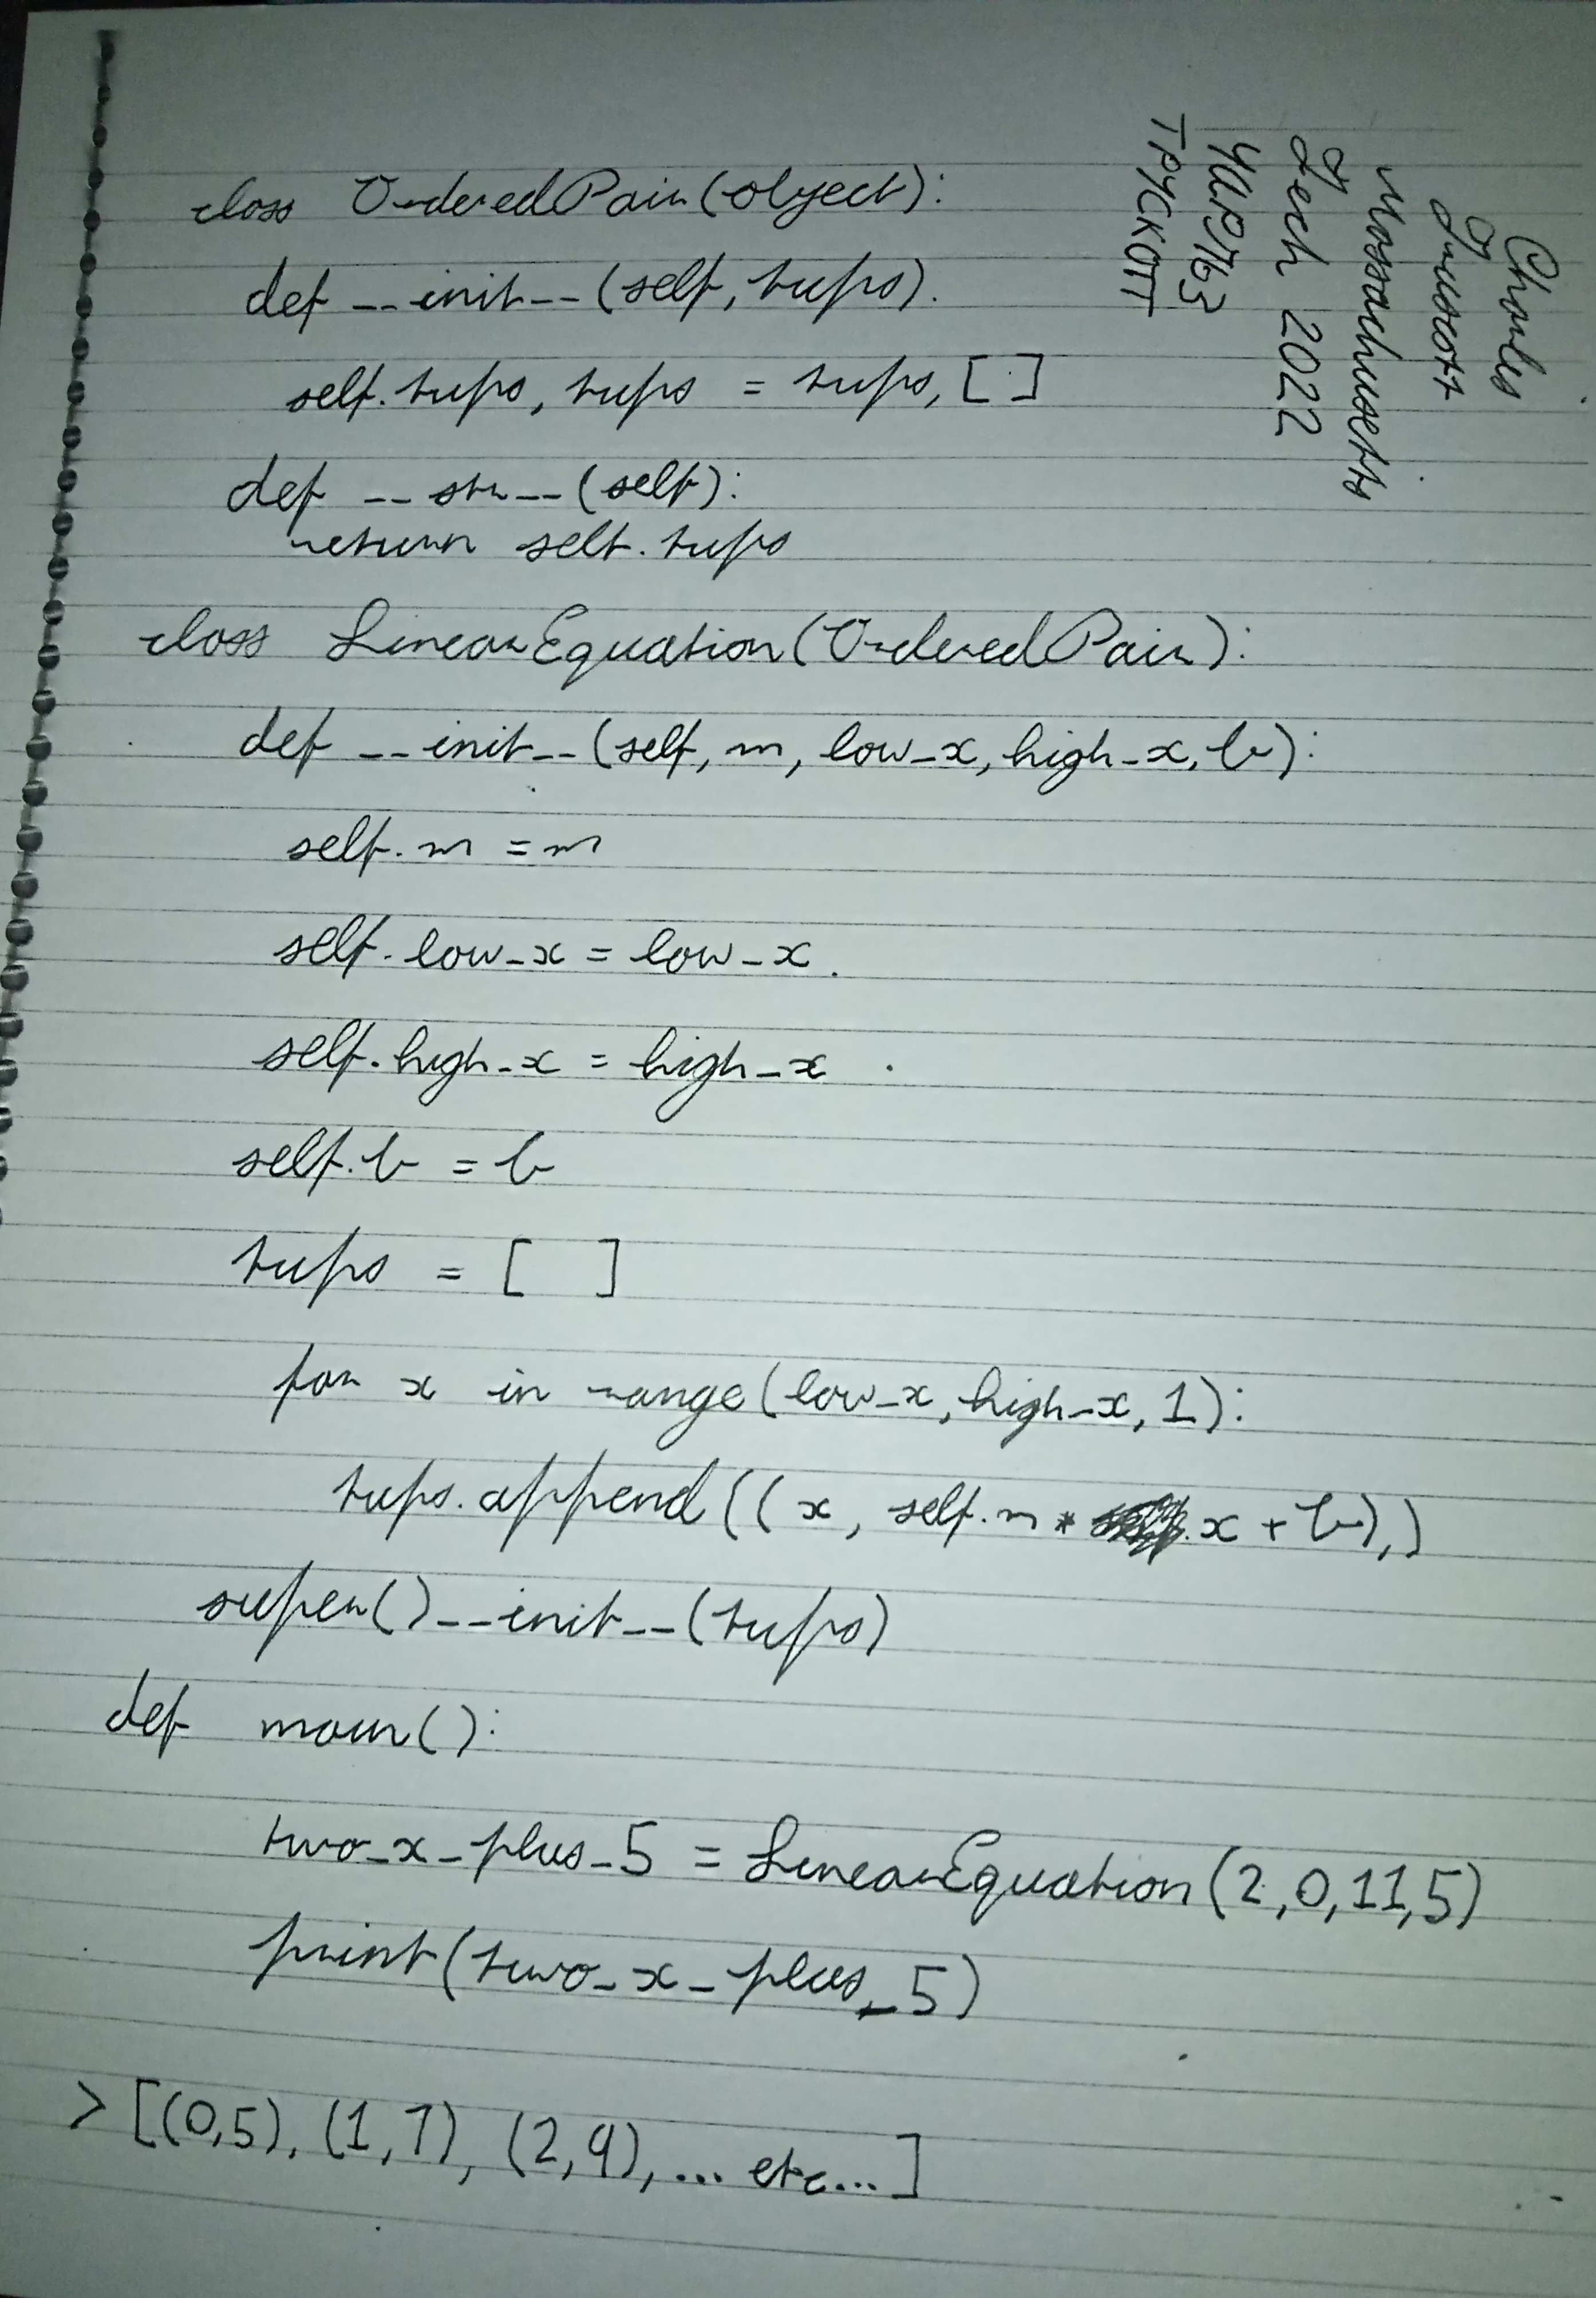 Charles
Truscott
Massachusetts
Tech 2022
ЧАРЛЬЗ
ТРУСКОТТ
class OrderedPair(object):
def __init__(self, tups).
self.tups, tups = tups, [ ]
def __str__(self):
return self.tups
class LinearEquation(OrderedPair):
def __init__(self, m, low_x, high_x, b):
self.m = m
self.low_x = low_x.
self.high_x = high_x
self.b = b
tups = [ ]
for x in range(low_x, high_x, 1):
tups.append((x, self.m * x + b),)
super()__init__(tups)
def main():
two_x_plus_5 = LinearEquation(2,0,11,5)
print(two_x_plus_5)
> [(0,5), (1,7), (2,9), ... etc...]